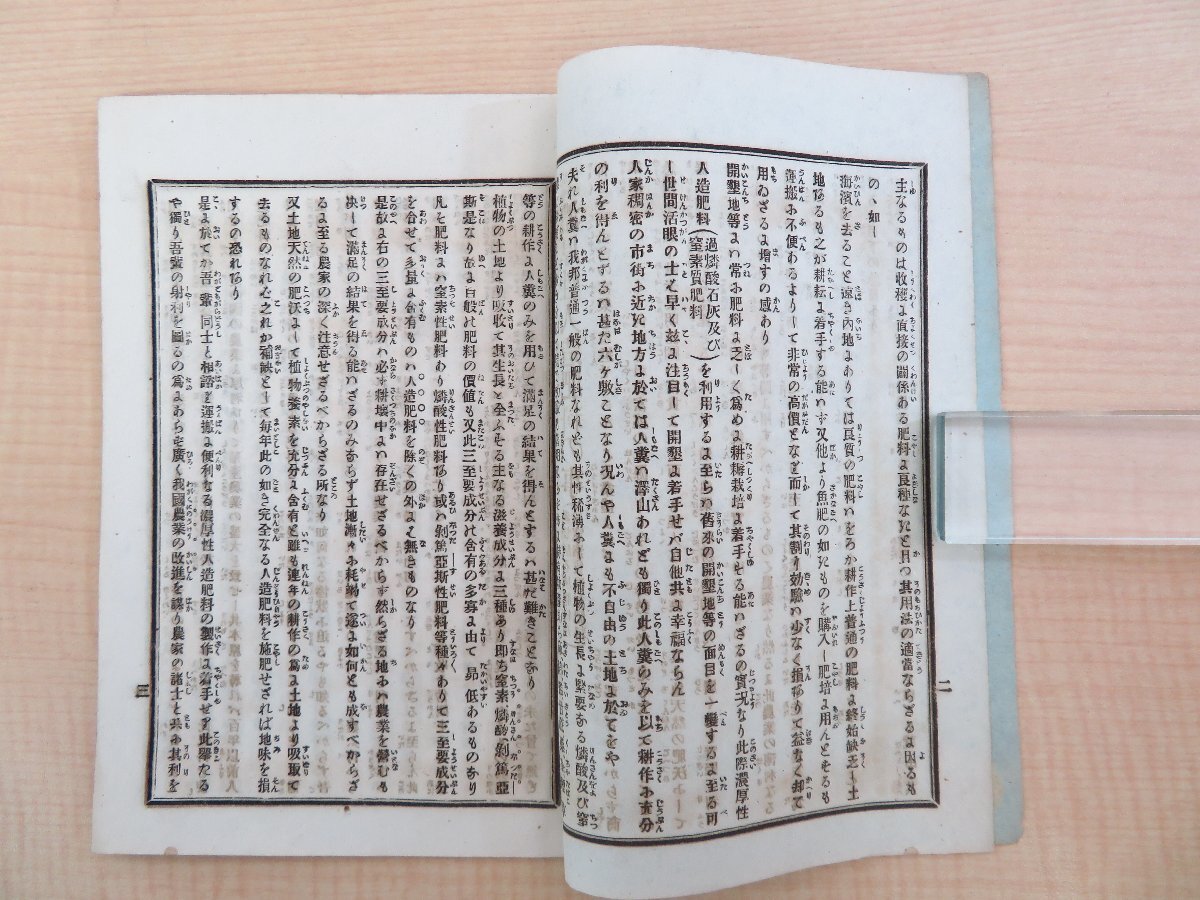 主なるものは收穫ふ直接の關係ある肥料ふ良種なきと且つ其用法の適當ならざるふ因るも
のゝ如し
海濱を去ること遠き內地ふありては良質の肥料ハおろか耕作上普通の肥料ふ終始缺乏し土
地あるも之が耕耘ふ着手する能ハず又他より魚肥の如きものを購入し肥培ふ用んとせるも
運搬ふ不便あるよりして非常の高價となり而して其割り効驗ハ少なく損ありて益なく却て
用ゐざるふ增すの感あり
開墾地等ふハ常ふ肥料ふ乏しく爲めふ耕耨栽培ふ着手せる能ハざるの實况なり此際濃厚性
人造肥料(過燐酸石灰及び窒素質肥料)を利用するふ至らハ舊來の開墾地等の面目を一變するふ至る可
し世間活眼の士そ早く茲ふ注目して開墾ふ着手せバ自他共ふ幸福ならん
人家稠密の市街ふ近き地方ふ於ては人糞ハ澤山あれども獨り此人糞のみを以て耕作ふ充分
の利を得んとずるハ甚た六ヶ敷ことなり况んや人糞ふも不自由の土地ふ於てをや
夫れ人糞ハ我邦普通一般の肥料なれども其性稀薄ふして植物の生長ふ緊要ある燐酸及び窒
二
等の耕作ふ人糞のみを用ひて滿足の結果を得んとするハ甚だ難きことなり
植物の土地より吸收て其生長を全ふそる主なる滋養成分ふ三種あり即ち窒素燐酸剝篤亞
斯是なり故ふ百般の肥料の價値も又此三至要成分の含有の多寡ふ由て昂低あるものあり
凡を肥料ふハ窒素性肥料あり燐酸性肥料あり或ハ剝篤亞斯性肥料等種々ありて三至要成分
を合せて多量ふ含有ものハ人造肥料を除くの外ふ無きものなり
是故ふ右の三至要成分ハ必す耕壤中ふハ存在せざるべからず然らざる地ふハ農業を營むも
决して滿足の結果を得る能ハざるのみあらず土地漸々ふ耗場て遂ふ如何とも成すべからざ
るふ至る農家の深く注意せざるべからざる所なり
又土地天然の肥沃ふして植物營素を充分ふ含有と雖も連年の耕作の爲ふ土地より吸取て
去るものなれそ之れか補缺として每年此の如き完全なる人造肥料を施肥せされば地味を損
するの恐れあり
是ふ於てか吾輩同士と相謀と運搬ふ便利なる濃厚性人造肥料の製作ふ着手せり此擧たる
や獨り吾輩の射利を圖るの爲ふあらも廣く我國農業の改進を謀り農家の諸士と共ふ其利を
三